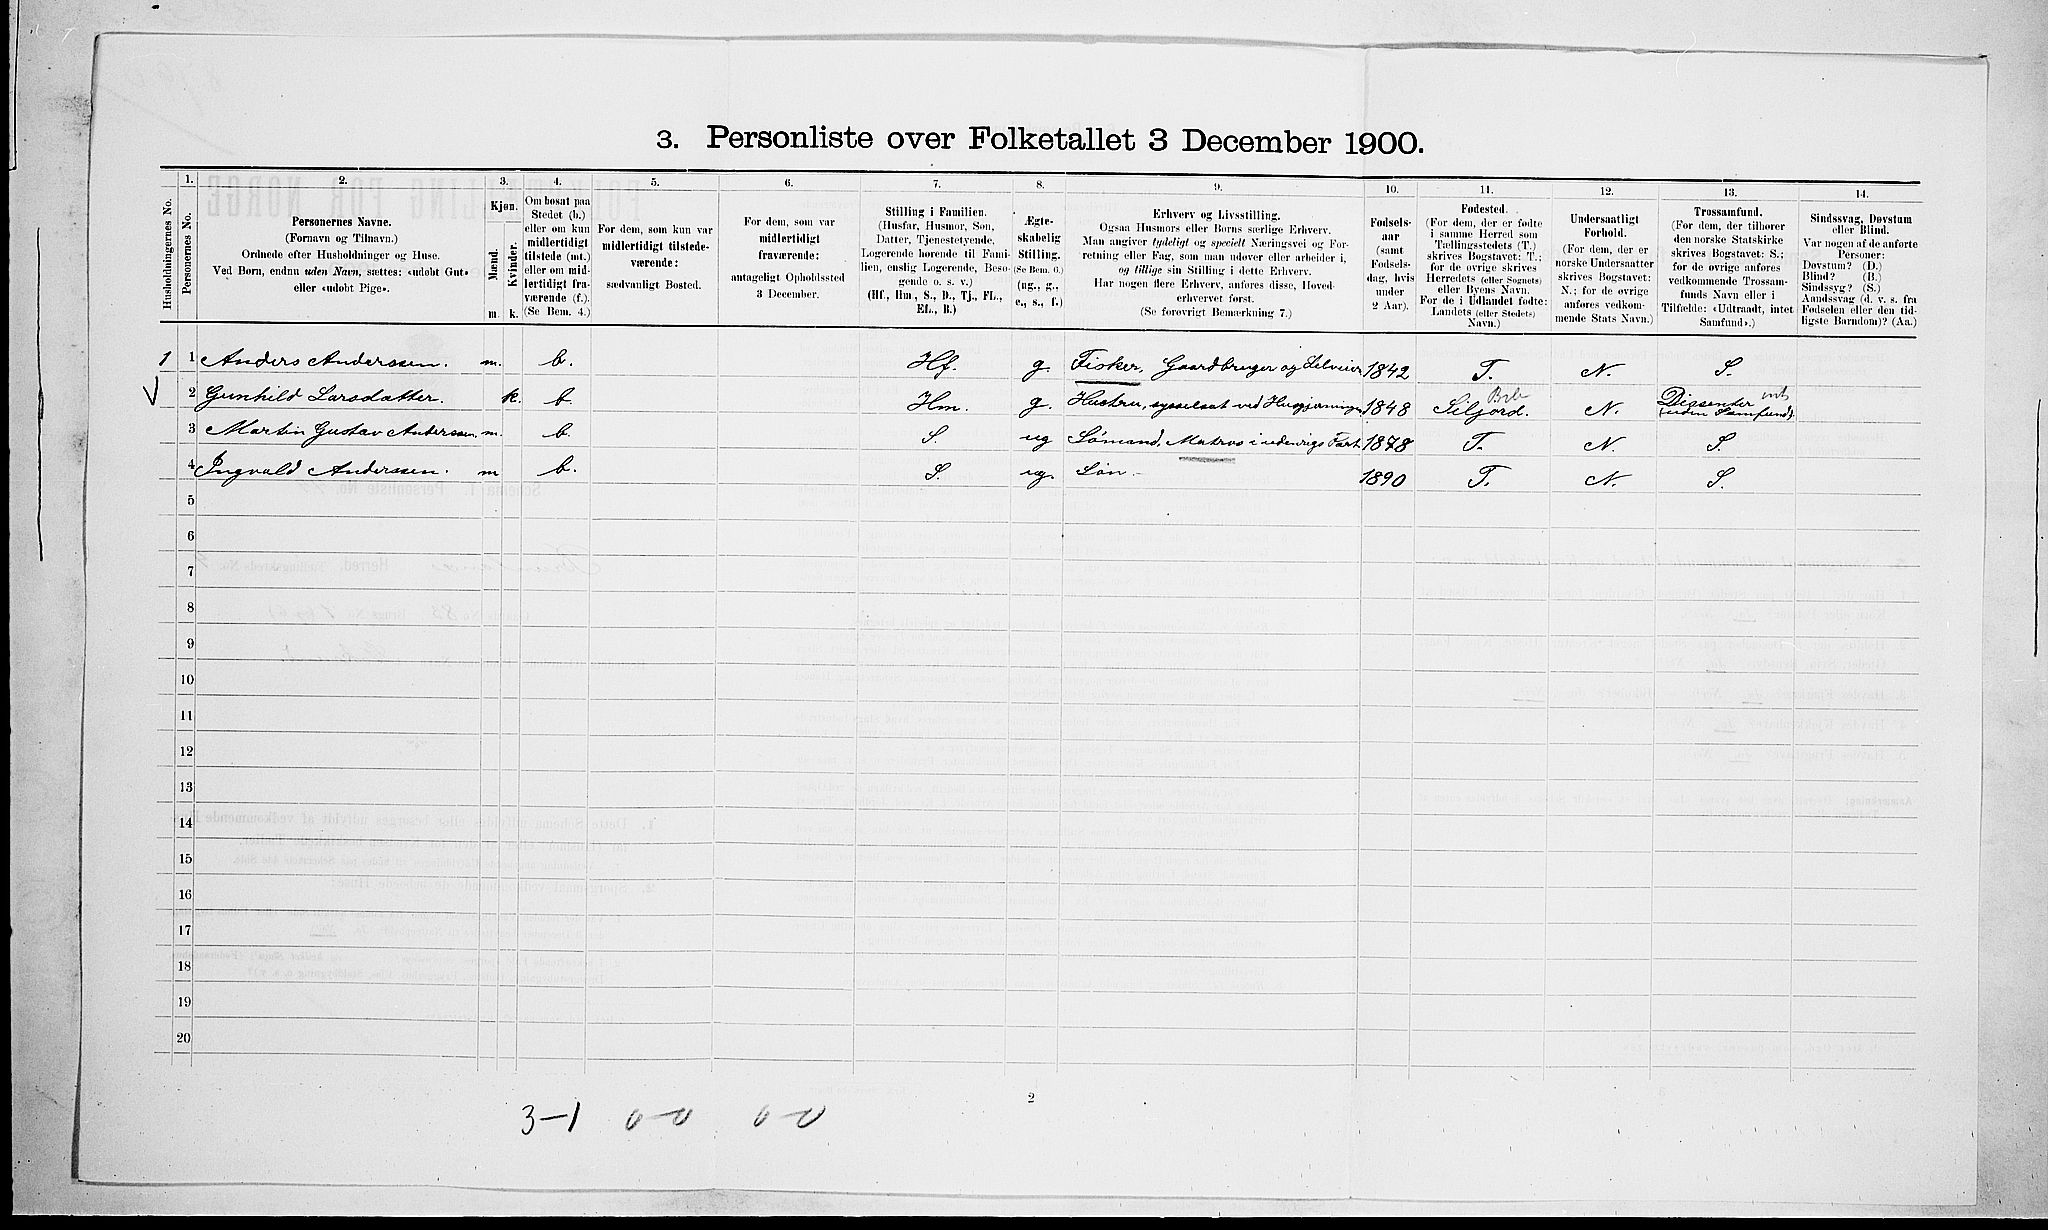 3. Personliste over Folketallet 3 December 1900.
Husholdningernes No.
1.
Personernes No.
2.
Personernes Navne.
(Fornavn og Tilnavn.)
Ordnede efter Husholdninger og Huse.
Ved Børn, endnu uden Navn, sættes: «udøbt Gut»
eller «udøbt Pige».
3.
Kjøn.
Mænd.
Kvinder.
m. k.
4.
Om bosat paa
Stedet (b.)
eller om kun
midlertidigt
tilstede (mt.)
eller om mid-
lertidigt fra-
værende (f.).
(Se Bem. 4.)
5.
For dem, som kun var
midlertidigt tilstede-
værende:
sædvanligt Bosted.
6.
For dem, som var
midlertidigt
fraværende:
antageligt Opholdssted
3 December.
7.
Stilling i Familien.
(Husfar, Husmor, Søn,
Datter, Tjenestetyende,
Logerende hørende til Fami-
lien, enslig Logerende, Besø-
gende o. s. v.)
(Hf., Hm., S., D., Tj., FL.,
EL., B.)
8.
Ægte-
skabelig
Stilling.
(Se Bem. 6.)
(ug., g.,
e., s., f.)
9.
Erhverv og Livsstilling.
Ogsaa Husmors eller Børns særlige Erhverv.
Man angiver tydeligt og specielt Næringsvei og For-
retning eller Fag, som man udøver eller arbeider i,
og tillige sin Stilling i dette Erhverv.
Har nogen flere Erhverv, anføres disse, Hoved-
erhvervet først.
(Se forøvrigt Bemærkning 7.)
10.
Fødsels-
aar
(samt
Fødsels-
dag, hvis
under
2 Aar).
11.
Fødested.
(For dem, der er fødte
i samme Herred som
Tællingsstedets (T.)
skrives Bogstavet: T.;
for de øvrige skrives
Herredets (eller Sognets)
eller Byens Navn.
For de i Udlandet fødte:
Landets (eller Stedets)
Navn.)
12.
Undersaatligt
Forhold.
(For dem, der er
norske Undersaatter
skrives Bogstavet:
N.; for de øvrige
anføres vedkom-
mende Stats Navn.)
13.
Trossamfund.
(For dem, der tilhører
den norske Statskirke
skrives Bogstavet: S.;
for de øvrige anføres
vedkommende Trossam-
funds Navn eller i
Tilfælde: «Udtraadt, intet
Samfund».)
14.
Sindssvag, Døvstum
eller Blind.
Var nogen af de anførte
Personer:
Døvstum? (D.)
Blind? (B.)
Sindssyg? (S.)
Aandssvag (d. v. s. fra
Fødselen eller den tid-
ligste Barndom)? (Aa.)
1 1 Anders Anderssen. m. b. Hf. g. Fisker, Gaardbruger og Selveier 1842 T. N. S.
2 Gunhild Larsdatter. k. b. Hm. g. Hustru, sysselsat ved Husgjerninger 1848 Siljord. N. Dissenter (uden Samfund).
3 Martin Gustav Anderssen. m. b. S. ug Sømand, Matros i udenrigs Fart 1878 T. N. S.
4 Ingvald Anderssen. m b. S. ug. Søn. 1890 T. N. S.
5
6
7
8
9
10
11
12
13
14
15
16
17
18
19
20
2
3-1 0-0 0-0